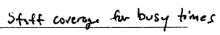 Staff coverage for busy times